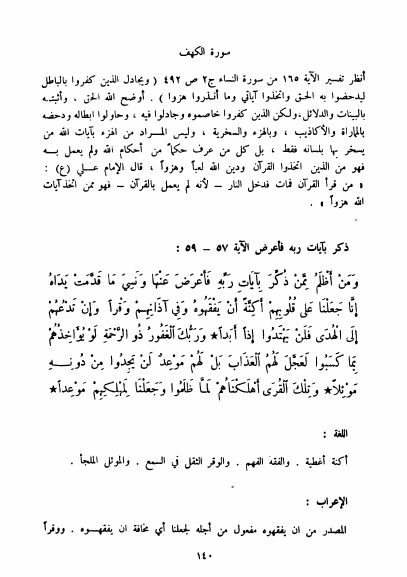 سورة الكهف
أنظر تفسير الآية ١٦٥ من سورة النساء ج٢ ص ٤٩٢ ( ويجادل الذين كفروا بالباطل
ليدحضوا به الحق واتخذوا آياتي وما أنذروا هزوا ) . أوضح الله الحق ، وأثبته
بالبينات والدلائل ، ولكن الذين كفروا خاصموه وجادلوا فيه ، وحاولوا ابطاله ودحضه
بالمماراة والأكاذيب ، وبالهزء والسخرية ، وليس المراد من الهزء بآيات الله من
يسخر بها بلسانه فقط ، بل كل من عرف حكماً من أحكام الله ولم يعمل به
فهو من الذين اتخذوا القرآن ودين الله لعباً وهزواً ، قال الإمام علي (ع) :
« من قرأ القرآن فمات فدخل النار – لأنه لم يعمل بالقرآن – فهو ممن اتخذ آيات
الله هزواً » .
ذكر بآيات ربه فأعرض الآية ٥٧ – ٥٩ :
وَمَنْ أَظْلَمُ مِمَّنْ ذُكِّرَ بِآيَاتِ رَبِّهِ فَأَعْرَضَ عَنْهَا وَنَسِيَ مَا قَدَّمَتْ يَدَاهُ
إِنَّا جَعَلْنَا عَلَى قُلُوبِهِمْ أَكِنَّةً أَنْ يَفْقَهُوهُ وَفِي آذَانِهِمْ وَقْراً وَإِنْ تَدْعُهُمْ
إِلَى الْهُدَى فَلَنْ يَهْتَدُوا إِذاً أَبَداً★ وَرَبُّكَ الْغَفُورُ ذُو الرَّحْمَةِ لَوْ يُؤَاخِذُهُمْ
بِمَا كَسَبُوا لَعَجَّلَ لَهُمُ الْعَذَابَ بَلْ لَهُمْ مَوْعِدٌ لَنْ يَجِدُوا مِنْ دُونِهِ
مَوْئِلاً★ وَتِلْكَ الْقُرَى أَهْلَكْنَاهُمْ لَمَّا ظَلَمُوا وَجَعَلْنَا لِمَهْلِكِهِمْ مَوْعِداً★
اللغة :
أكنة أغطية . والفقه الفهم . والوقر الثقل في السمع . والموئل الملجأ .
الإعراب :
المصدر من ان يفقهوه مفعول من أجله لجعلنا أي مخافة ان يفقهوه . ووقراً
١٤٠